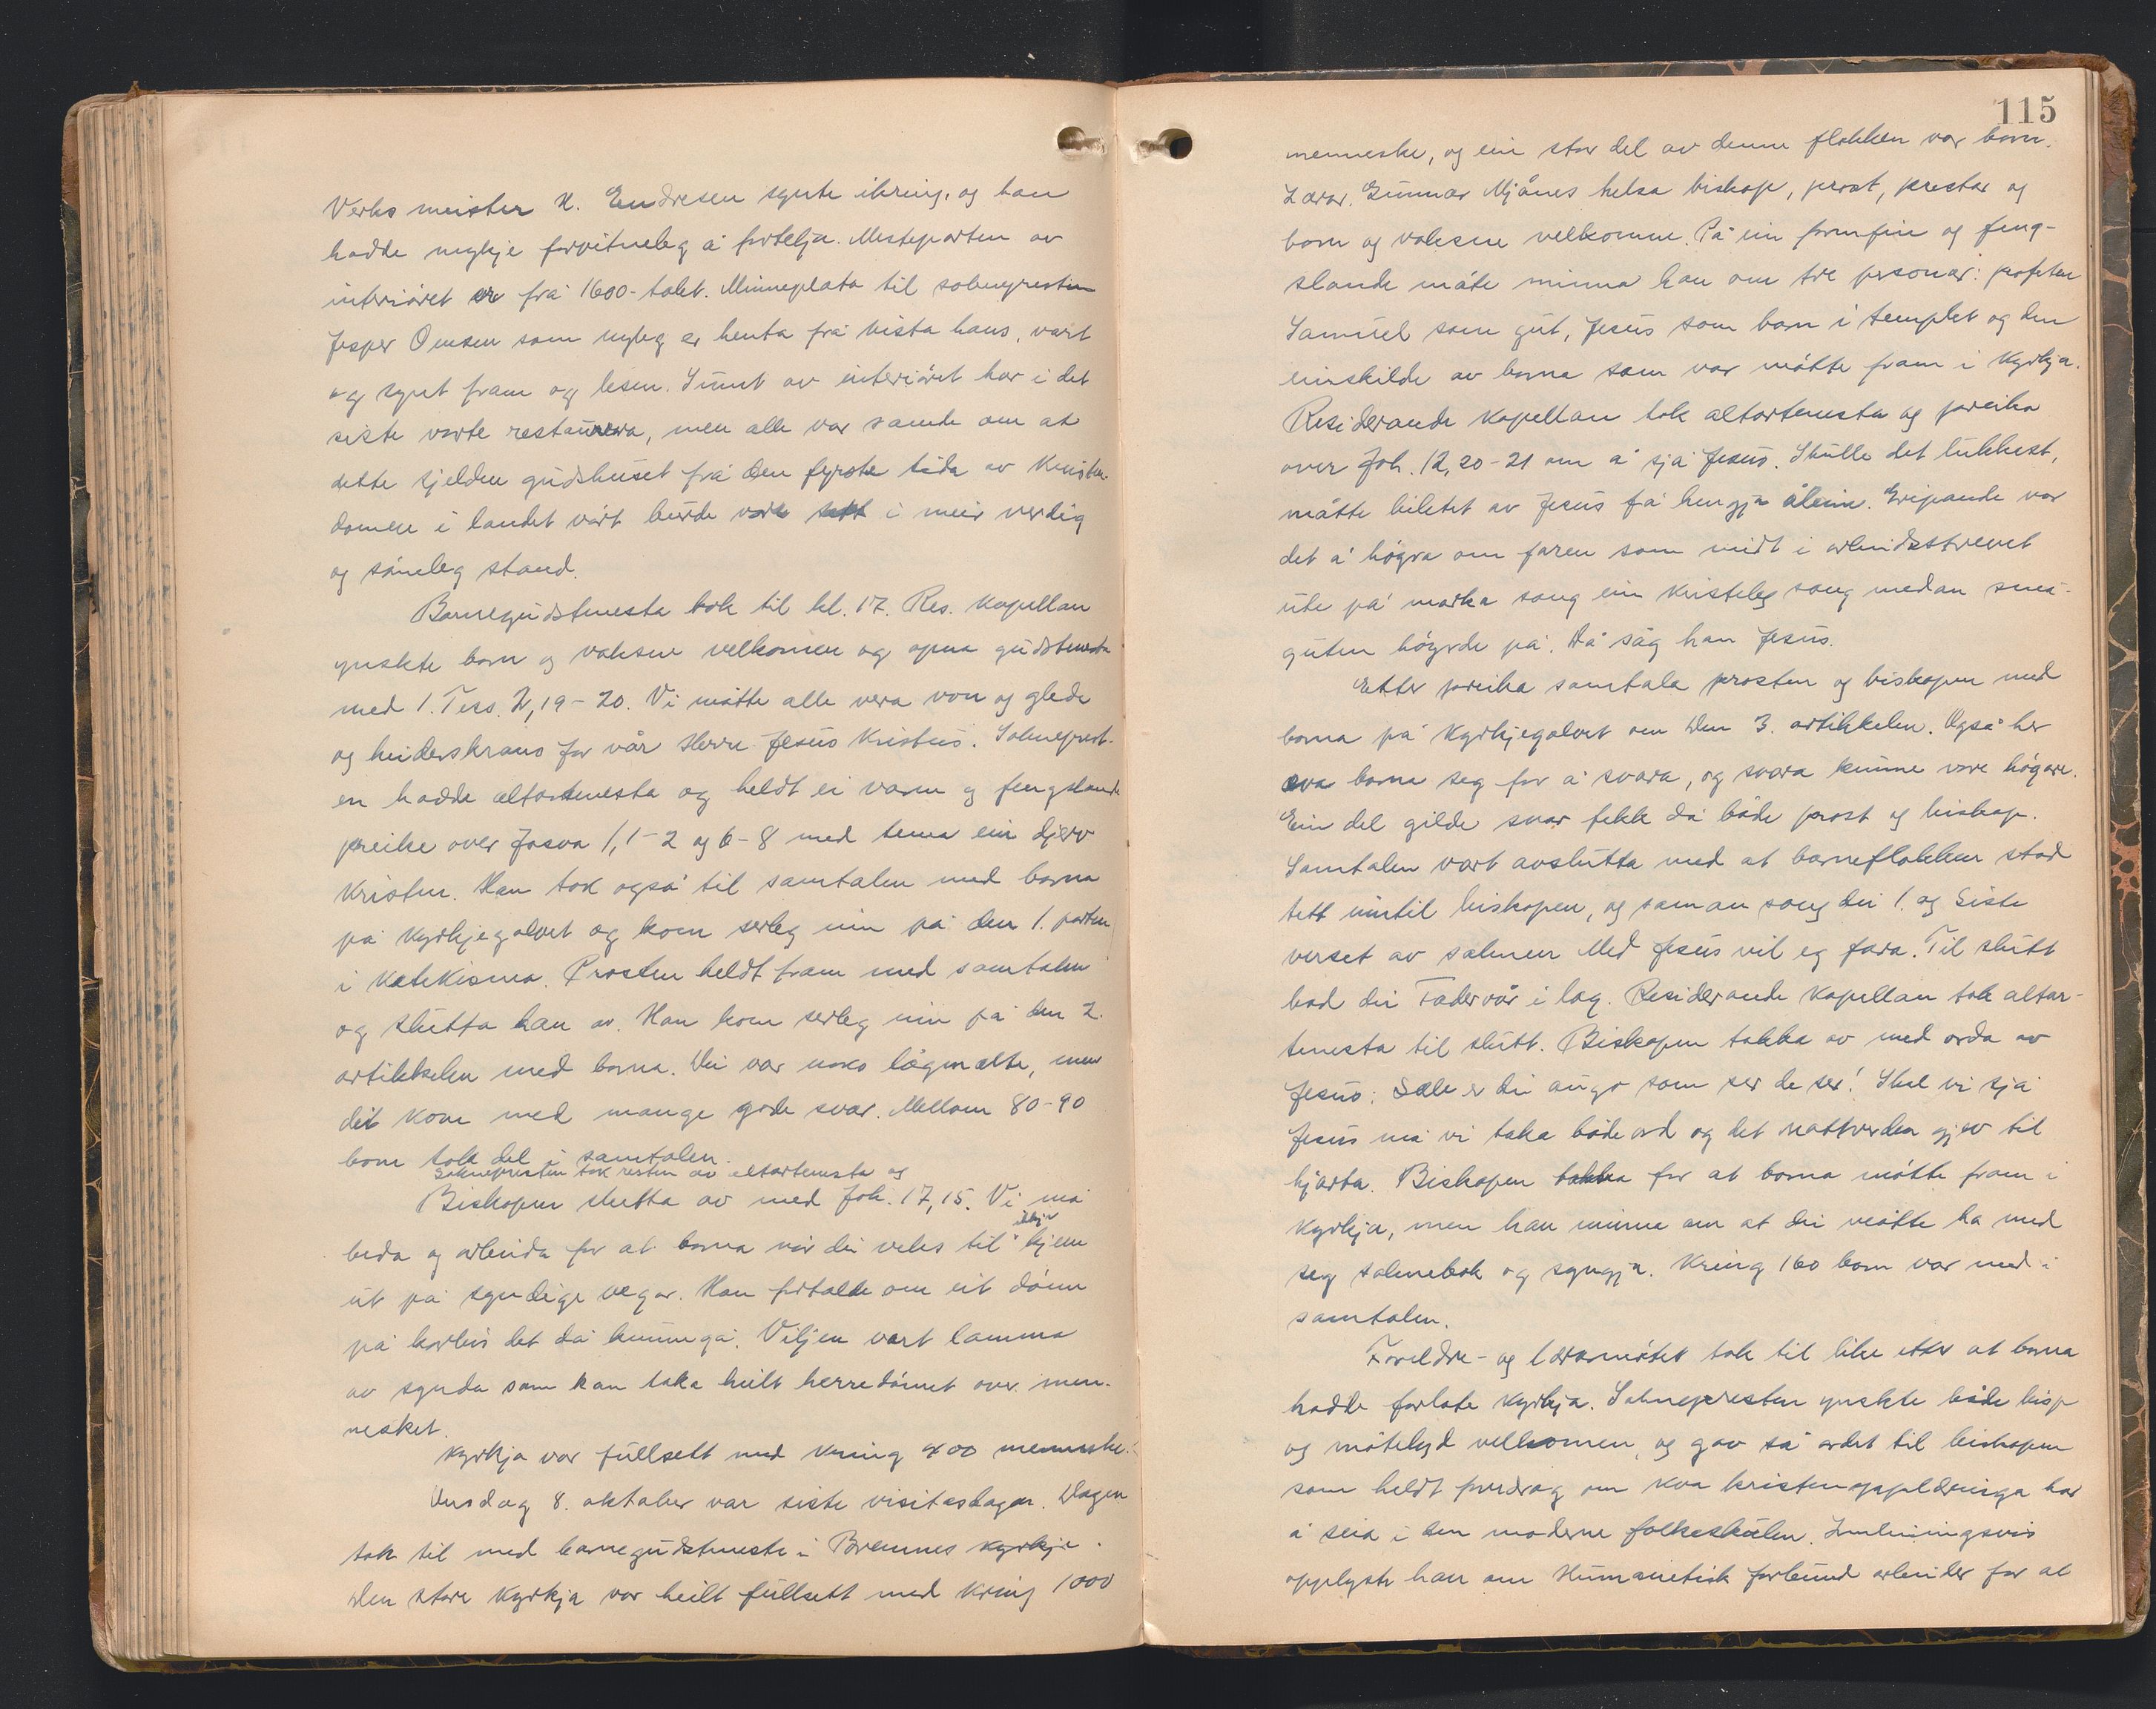 Verksmeister N. Endresen synte ikring, og han
hadde mykje forvitneleg å fortelja. Mesteparten av
interiøret er frå 1600-talet. Minneplata til soknepresten
Jesper Omsen som nyleg er henta frå kista hans, vart
og synt fram og lesen. Sumt av interiøret har i det
siste vorte restaurera, men alle var samde om at
dette sjeldne gudshuset frå den fyrste tida av kristen-
domen i landet vårt burde vore sett i meir verdig
og sømeleg stand.
Barnegudstenesta tok til kl. 17. Res. kapellan
ynskte born og vaksne velkomen og opna gudstenesta
med 1. Tess. 2, 19-20. Vi måtte alle vera von og glede
og heiderskrans for vår Herre Jesus Kristus. Soknepresten-
en hadde altartenesta og heldt ei varm og fengslande
preike over Josva 1, 1-2 og 6-8 med tema ein djerv
kristen. Han tok også til samtalen med borna
på kyrkjegolvet og kom serleg inn på den 1. parten
i katekisma. Prosten heldt fram med samtalen
og slutta han av. Han kom serleg inn på den 2.
artikkelen med borna. Dei var noko lågmælte, men
det kom med mange gode svar. Mellom 80-90
born tok del i samtalen.
Soknepresten tok resten av altartenesta og
Biskopen slutta av med Joh. 17, 15. Vi må
ikkje
beda og arbeida for at borna når dei veks til kjem
ut på syndige vegar. Han fortalde om eit døme
på korleis det då kunne gå. Viljen vart lamma
av synda som kan taka heilt herredømet over men-
nesket.
Kyrkja var fullsett med kring 400 menneske.
Onsdag 8. oktober var siste visitasdagen. Dagen
tok til med barnegudsteneste i Bremnes kyrkje.
Den store kyrkja var heilt fullsett med kring 1000
115
menneske, og ein stor del av denne flokken var born.
Lærar Gunnar Mjånes helsa biskop, prost, prestar og
born og vaksne velkomne. På ein formfin og feng-
slande måte minna han om tre personar: profeten
Samuel som gut, Jesus som barn i templet og den
einskilde av borna som var møtte fram i kyrkja.
Residerande kapellan tok altartenesta og preika
over Joh. 12, 20-21 om å sjå Jesus. Skulle det lukkast,
måtte biletet av Jesus få hengja åleine. Gripande var
det å høyra om faren som midt i arbeidsstrevet
ute på marka song ein kristeleg song medan små-
guten høyrde på. Då såg han Jesus.
Etter preika samtala prosten og biskopen med
borna på kyrkjegolvet om den 3. artikkelen. Også her
borna seg for å svara, og svara kunne vore høgare.
Ein del gilde svar fekk då både prost og biskop.
Samtalen vart avslutta med at barneflokken stod
tett inntil biskopen, og saman song dei 1. og siste
verset av salmen Med Jesus vil eg fara. Til slutt
bad dei Fadervår i lag. Residerande kapellan tok altar-
tenesta til slutt. Biskopen takka av med orda av
Jesus: Sæle er dei augo som ser de ser! Skal vi sjå
Jesus må vi taka både ord og det nattverden gjev til
hjarta. Biskopen takka for at borna møtte fram i
kyrkja, men han minna om at dei måtte ha med
seg salmebok og syngja. Kring 160 born var med i
samtalen.
Foreldre- og lærarmøtet tok til like etter at borna
hadde forlate kyrkja. Soknepresten ynskte både bisp
og møtelyd velkomen, og gav så ordet til biskopen
som heldt foredrag om kva kristenopplæringa har
å seia i den moderne folkeskulen. Innleiingsvis
opplyste han om Humanetisk forbund arbeider for at